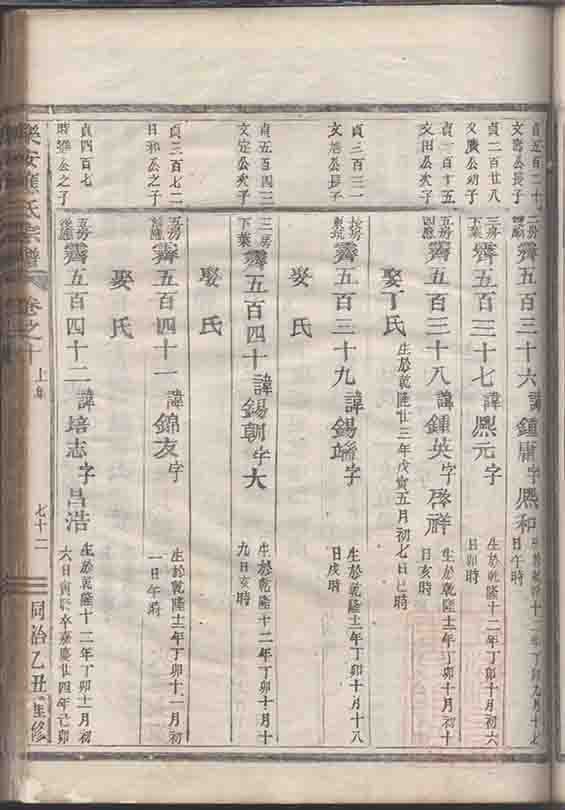 貞五百二十
文公長子
二房
霽五百三十六諱鍾庸字熙和
日午時
貞二百廿八
文騰公幼子
三房
下葉
霽五百三十七諱熙元字
生於乾隆十二年丁卯十月初六
日卯時
貞一百十五
文田公次子
五房
霽五百三十八諱鍾英字啓祥
生於乾隆十二年丁卯十月初十
日亥時
娶丁氏
生於乾隆廿三年戊寅五月初七日巳時
貞三百三一
文公長子
霽五百三十九諱錫字
生於乾隆十二年丁卯十月十八
日戌時
娶氏
貞五百四三
文定公次子
三房
下葉
霽五百四十諱錫朝字大
生於乾隆十二年丁卯十月十
九日亥時
娶氏
貞三百七二
日和公之子
五房
霽五百四十一諱錦友字
生於乾隆十二年丁卯十一月初
一日午時
娶氏
貞四百七
時公之子
五房
霽五百四十二諱培志字昌浩
生於乾隆十二年丁卯十二月初
六日寅時卒嘉慶廿四年己卯
樂安氏宗譜
卷之十
上集
七十二
同治乙丑重修